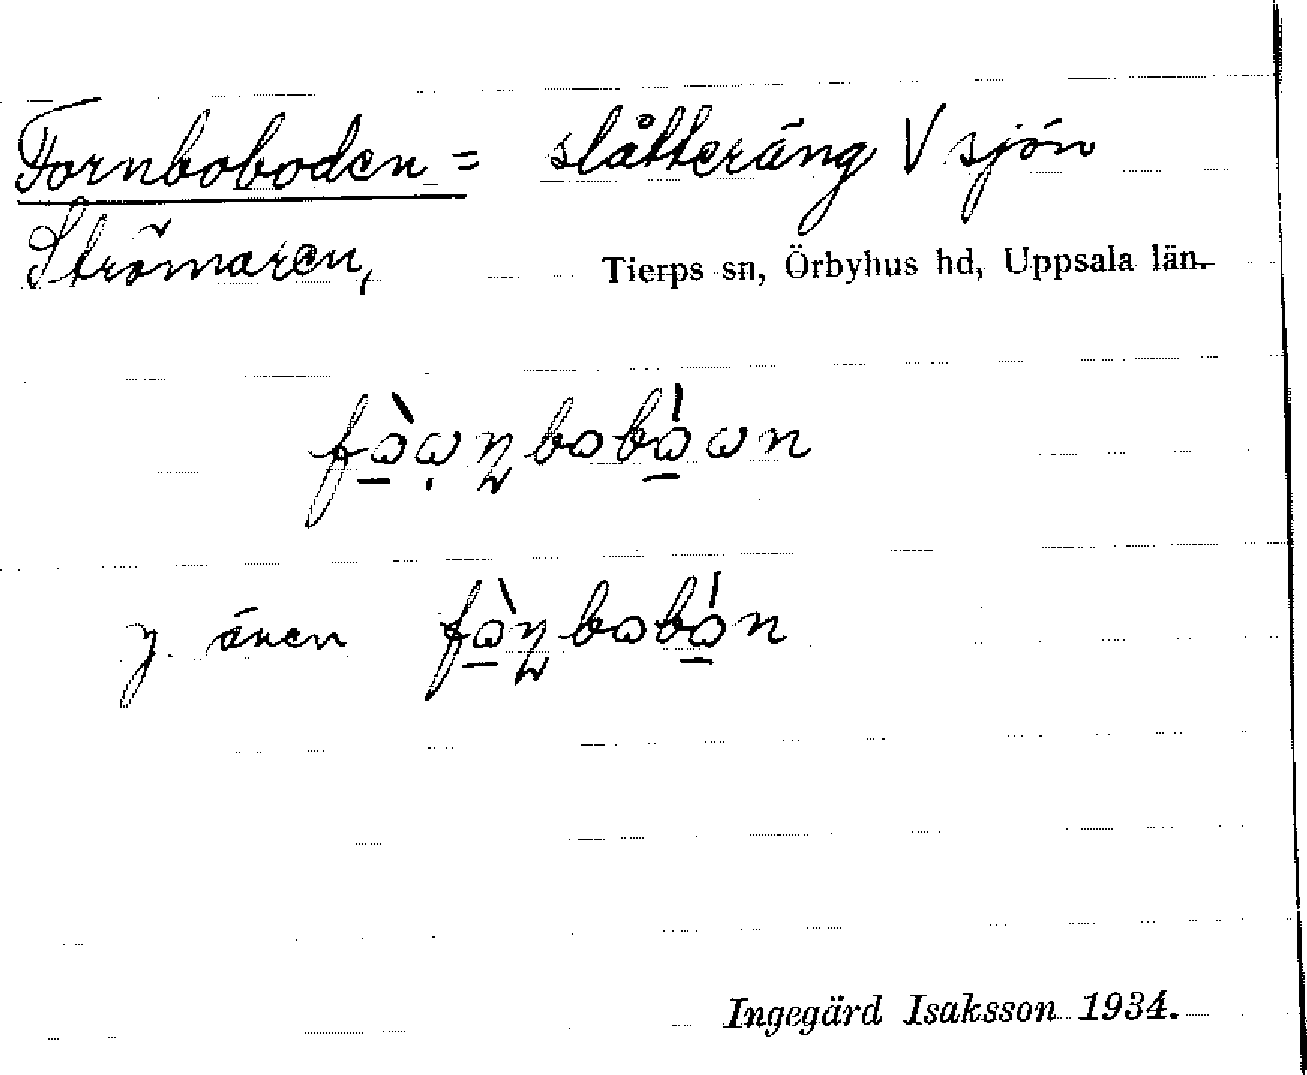 Fornboboden = slåtteräng V sjön
Strömaren,
Tierps sn, Örbyhus hd, Uppsala län.
även
Ingegärd Isaksson 1934.